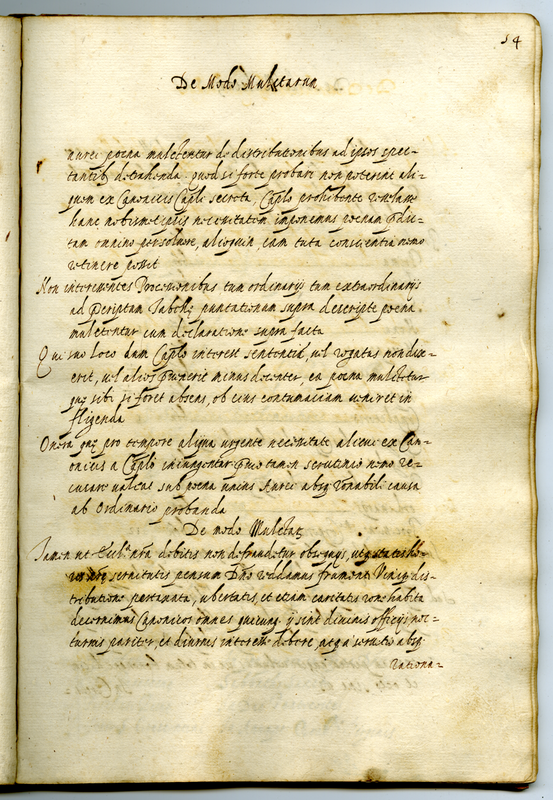 14
De Modo Mulctarum
aurei poena mulctentur de distributionibus ad ipsos spec-
tantib. detrahenda, quod si forte probari non poterint ali-
quem ex Canonicis Capli secreta, Caplo prohibente
hanc nobismetipsis necessitatem imponimus poenam
tam omnino persolvere, alioquin, eam tuta conscientia nemo
retinere possit
Non interessentes Processionibus tam ordinarijs tam extraordinarijs
ad Tabellę punctationum supra descripte poena
mulctentur cum declaratione supra facta
Qui suo loco dum Caplo interest sententiā, vel rogatus non dixe-
erit, vel alios minus decenter, ea poena mulctetur
quę sibi si foret absens, ob eius contumaciam veniret in
fligenda
Onera quę pro tempore aliqua urgente necessitate alicui ex Can-
onicis a Caplo iniungentur tamen scrutinio nemo re-
cusare valeat sub poena unius Aurei absq. causa
ab Ordinario probanda
De modo Mulctaꝝ
Tamen ne debitis non defraudetur obsequijs,
servitutis pensum reddamus frumenti Viniq. dis-
tributione perpensata, ubertatis, et etiam caritatis habita
decernimus Canonicos omnes divinis officijs noc-
turnis pariter, et diurnis interesse debere, absq.
rationa-